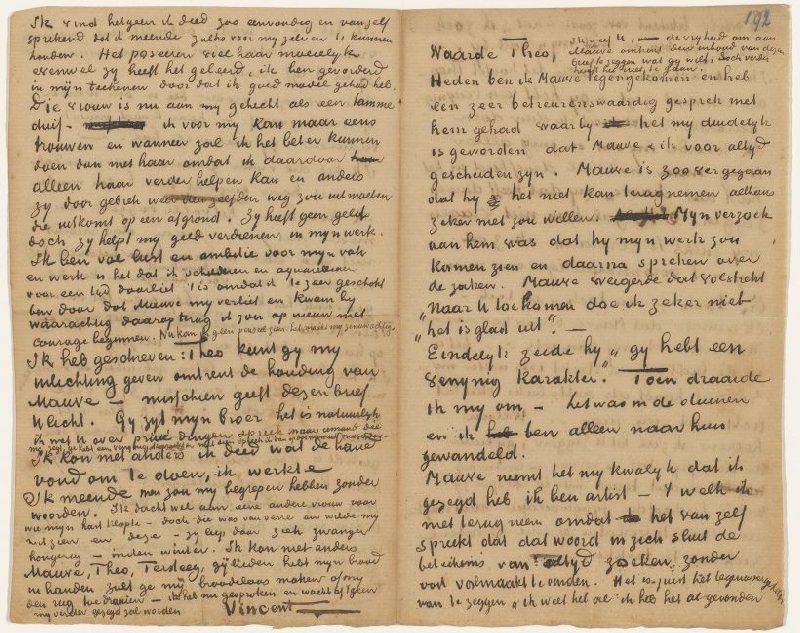 Ik vind hetgeen ik deed zoo eenvoudig en van zelf
sprekend dat ik meende zulks voor mij zelven te kunnen
houden. Het poseeren viel haar moeielyk
evenwel zy heeft het geleerd, ik ben gevorderd
in myn teekenen door dat ik goed model gehad heb.
Die vrouw is nu aan my gehecht als een tamme
duif – ik voor my kan maar eens
trouwen en wanneer zal ik het beter kunnen
doen dan met haar omdat ik daardoor
alleen haar verder helpen kan en anders
zy door gebrek weer den zelfden weg zou uit moeten
die uitkomt op een afgrond. Zy heeft geen geld
doch zy helpt my geld verdienen in myn werk.
Ik ben vol lust en ambitie voor myn vak
en werk is het dat ik schilderen en aquarelleeren
voor een tyd daarliet 't is omdat ik te zeer geschokt
ben door dat Mauve my verliet en kwam hy
waarachtig daarop terug ik zou op nieuw met
courage beginnen. Nu kan ik geen penseel zien het maakt my zenuwachtig.
Ik heb geschreven: Theo kunt gy my
inlichting geven omtrent de houding van
Mauve – misschien geeft dezen brief
U licht. Gy zyt myn broer het is natuurlyk
ik met U over privé dingen spreek maar iemand die
my zegt ge hebt een venynig karakter met dien spreek ik dan voor 't oogenblik niet verder
Ik kon niet anders ik deed wat de hand
vond om te doen, ik werkte
Ik meende men zou my begrepen hebben zonder
woorden. Ik dacht wel aan eene andere vrouw voor
wie myn hart klopte – doch die was van verre en wilde my
niet zien en deze – zy liep daar ziek zwanger
hongerig – in den winter. Ik kon niet anders
Mauve, Theo, Tersteeg, gijlieden hebt myn brood
in handen zult ge my broodeloos maken of my
den rug toe draaien – ik heb nu gesproken en wacht af 't geen
my verder gezegd zal worden
Vincent
192
Waarde Theo,
de vryheid om aan
Mauve omtrent den inhoud van dezen
brief te zeggen wat gy wilt. Doch verder
heeft het niet te gaan.
Heden ben ik Mauve tegengekomen en heb
een zeer betreurenswaardig gesprek met
hem gehad waarby het my duidelyk
is geworden dat Mauve & ik voor altyd
gescheiden zyn. Mauve is zoo ver gegaan
dat hy het niet kan terugnemen althans
zeker niet zou willen. Myn verzoek
aan hem was dat hy myn werk zou
komen zien en daarna spreken over
de zaken. Mauve weigerde dat volstrekt
"Naar U toekomen doe ik zeker niet
"het is glad uit". —
Eindelyk zeide hy "gy hebt een
venynig karakter." Toen draaide
ik my om, – het was in de duinen
en ik ben alleen naar huis
gewandeld.
Mauve neemt het my kwalyk dat ik
gezegd heb ik ben artist – 't welk ik
niet terug neem omdat het van zelf
spreekt dat dat woord in zich sluit de
beteekenis van: altyd zoeken zonder
ooit volmaakt te vinden. Het is juist het tegenovergestelde
van te zeggen "ik weet het al ik heb het al gevonden